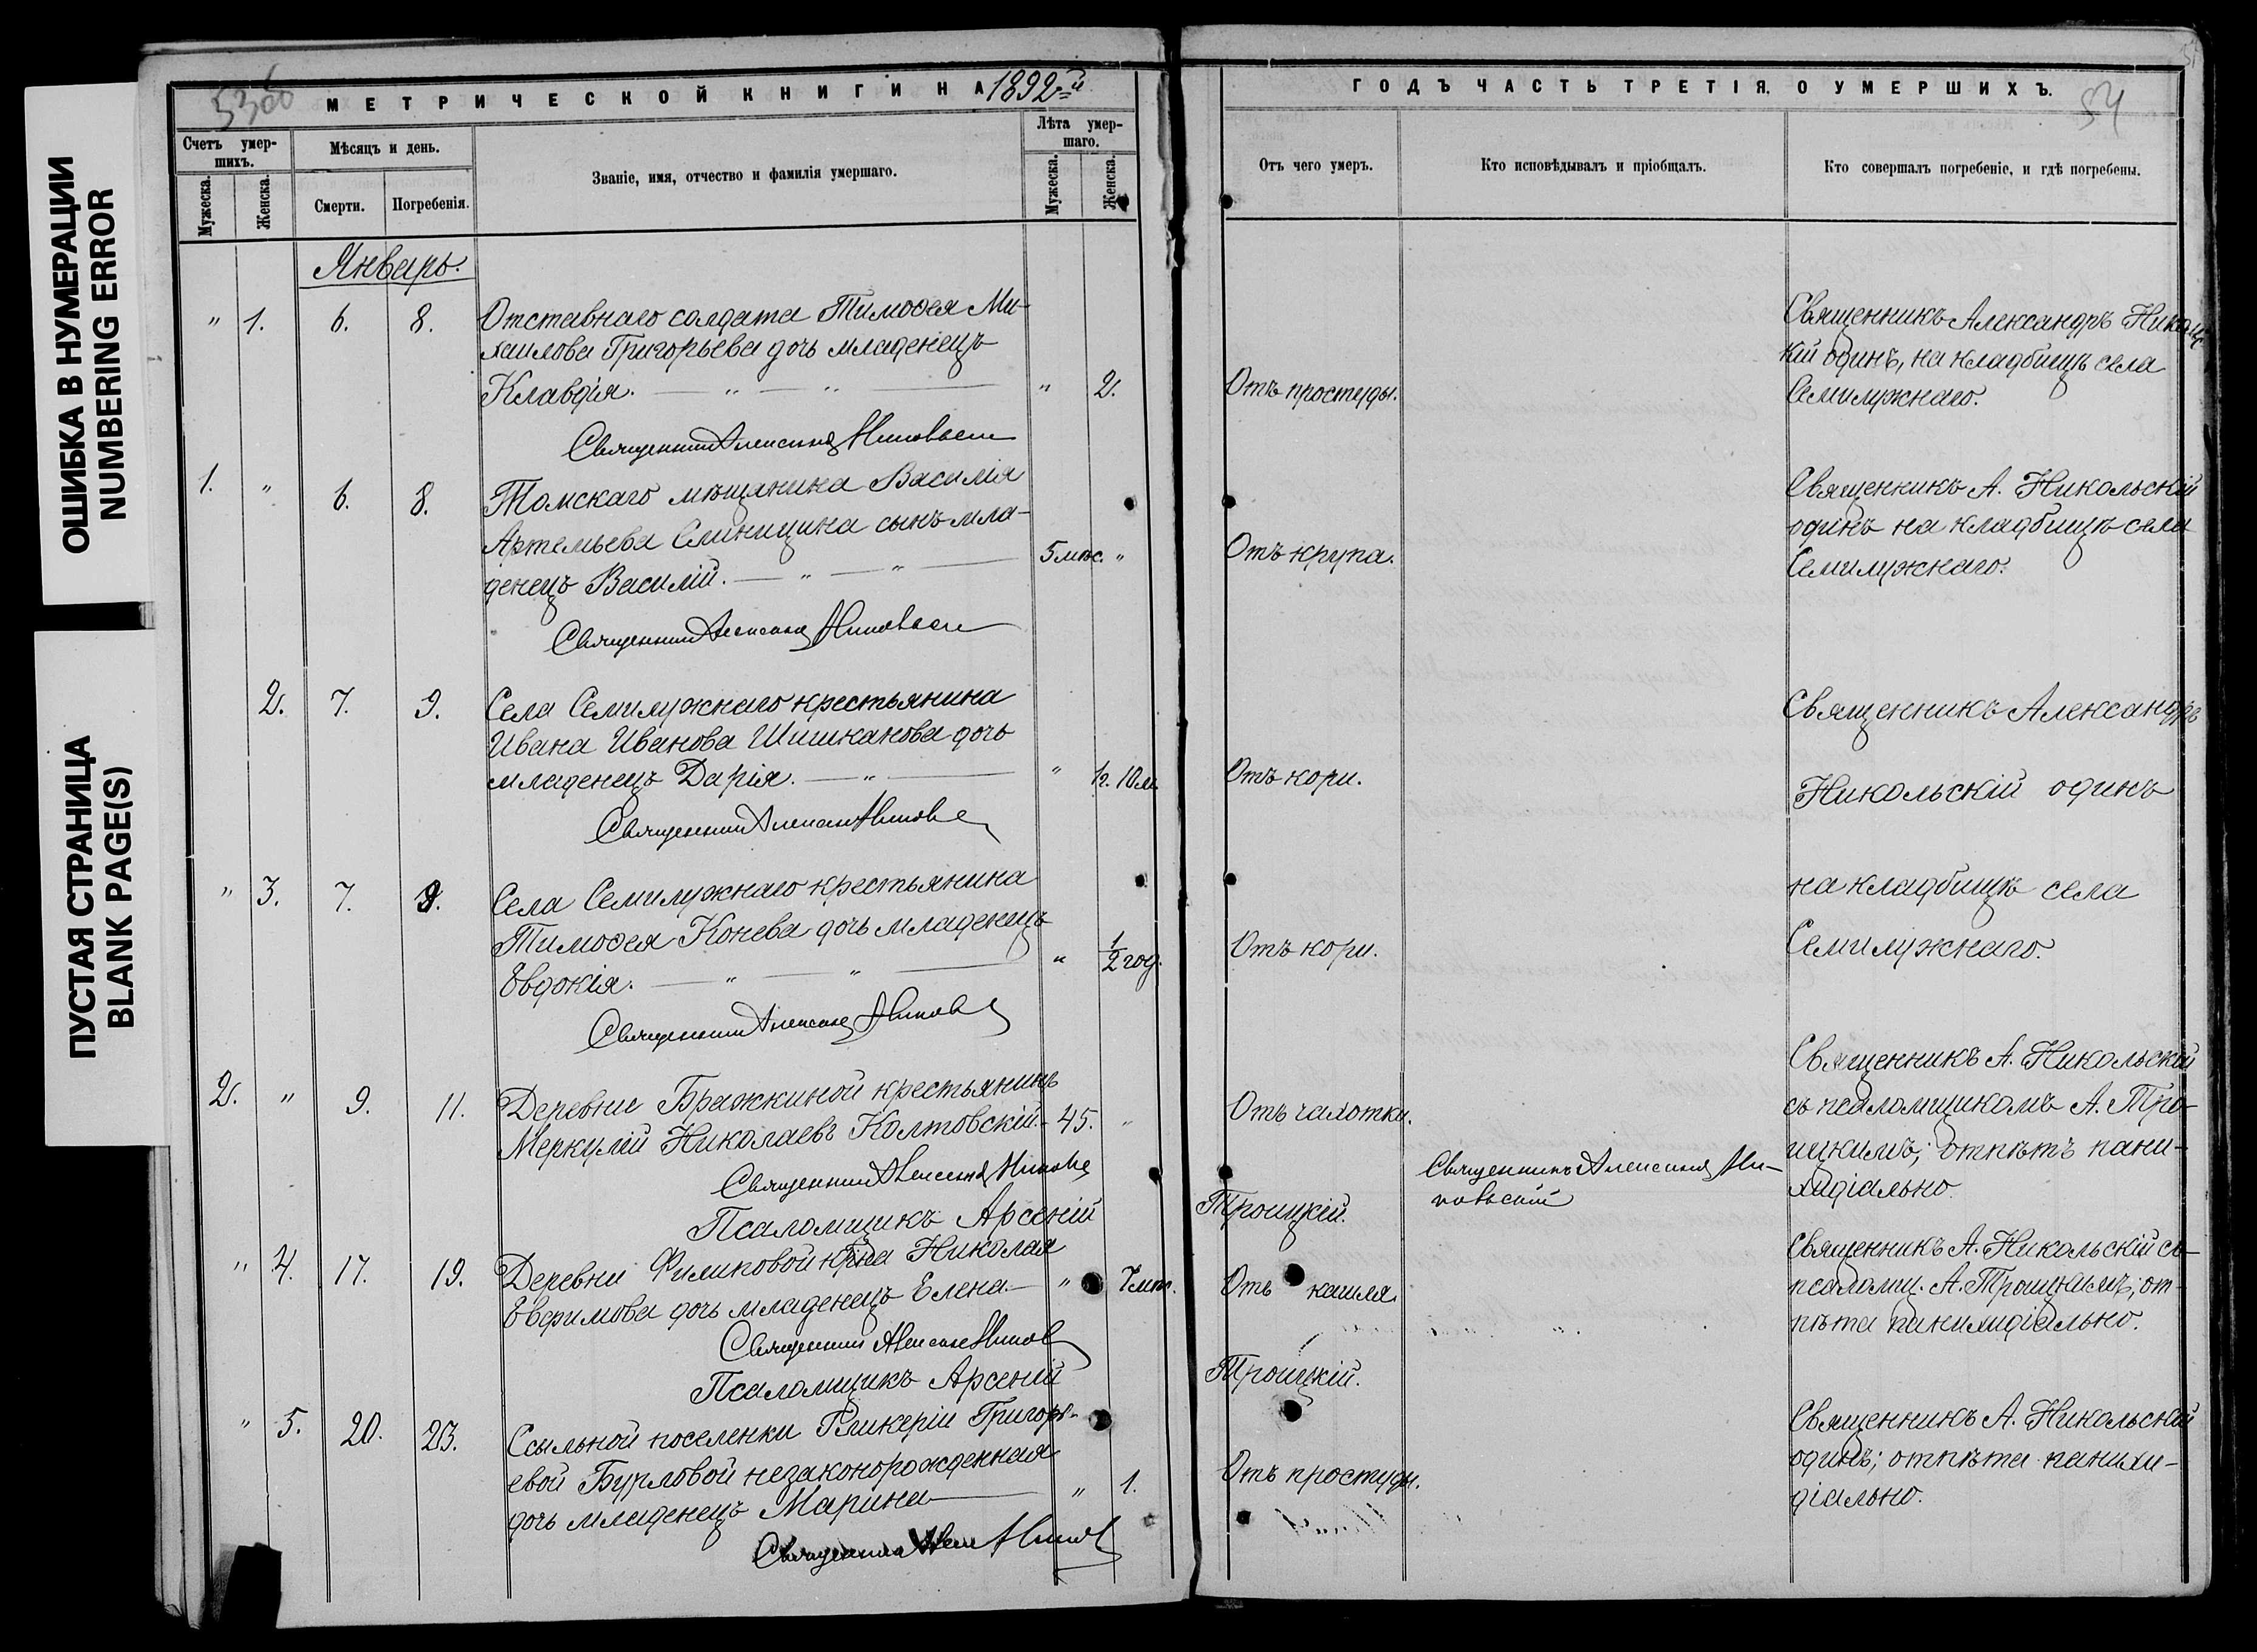 ОШИБКА В НУМЕРАЦИИ
NUMBERING ERROR
ПУСТАЯ СТРАНИЦА
BLANK PAGE(S)
МЕТРИЧЕСКОЙ КНИГИ НА 1892й
Счетъ умер-
шихъ.
Мѣсяцъ и день.
Званіе, имя, отчество и фамилія умершаго.
Лѣта умер-
шаго.
Мужеска.
Женска.
Смерти.
Погребенія.
Мужеска.
Женска.
Январь.
" 1. 6. 8. Отставнаго солдата Тимоѳея Ми-
хаилова Григорьева дочь младенецъ
Клавдія. " " " 2.
Священникъ Александръ Никольскій
1. " 6. 8. Томскаго мѣщанина Василія
Артемьева Синицина сынъ мла-
денецъ Василій. " " 5 мѣс. "
Священникъ Александръ Никольскій
2. 7. 9. Села Семилужнаго крестьянина
Ивана Иванова Шишканова дочь
младенецъ Дарія. " " 1г. 10 м.
Священникъ Александръ Никольскій
" 3. 7. 9. Села Семилужнаго крестьянина
Тимоѳея Конева дочь младенецъ
Евдокія. " " " 1/2 год.
Священникъ Александръ Никольскій
2. " 9. 11. Деревни Бражкиной крестьянинъ
Меркулій Николаевъ Колтовскій. 45. "
Священникъ Александръ Никольскій
Псаломщикъ Арсеній
" 4. 17. 19. Деревни Филиповой кр-на Николая
Евѳимова дочь младенецъ Елена " 7 мѣс.
Священникъ Александръ Никольскій
Псаломщикъ Арсеній
" 5. 20. 23. Ссыльной поселенки Гликеріи Григорь-
евой Бурловой незаконорожденная
дочь младенецъ Марина " 1.
Священникъ Алек Никол
ГОДЪ ЧАСТЬ ТРЕТІЯ. О УМЕРШИХЪ.
54
Отъ чего умеръ.
Кто исповѣдывалъ и пріобщалъ.
Кто совершалъ погребеніе, и гдѣ погребены.
Священникъ Александръ Никольс-
кій одинъ, на кладбищѣ села
Отъ простуды. Семилужнаго.
Священникъ А. Никольскій
одинъ на кладбищѣ села
Отъ крупа. Семилужнаго.
Священникъ Александръ
Отъ кори. Никольскій одинъ
на кладбищѣ села
Отъ кори. Семилужнаго.
Священникъ А. Никольскій
Отъ чахотки. съ псаломщикомъ А. Тро-
Священникъ Александръ Ни- ицкимъ; отпѣтъ пани-
Троицкій. кольскій хидіально.
Священникъ А. Никольскій съ
Отъ кашля. псаломщ. А. Троицкимъ; от-
пѣта панихидіально.
Троицкій.
Священникъ А. Никольскій
Отъ простуды. одинъ; отпѣта панихи-
діально.